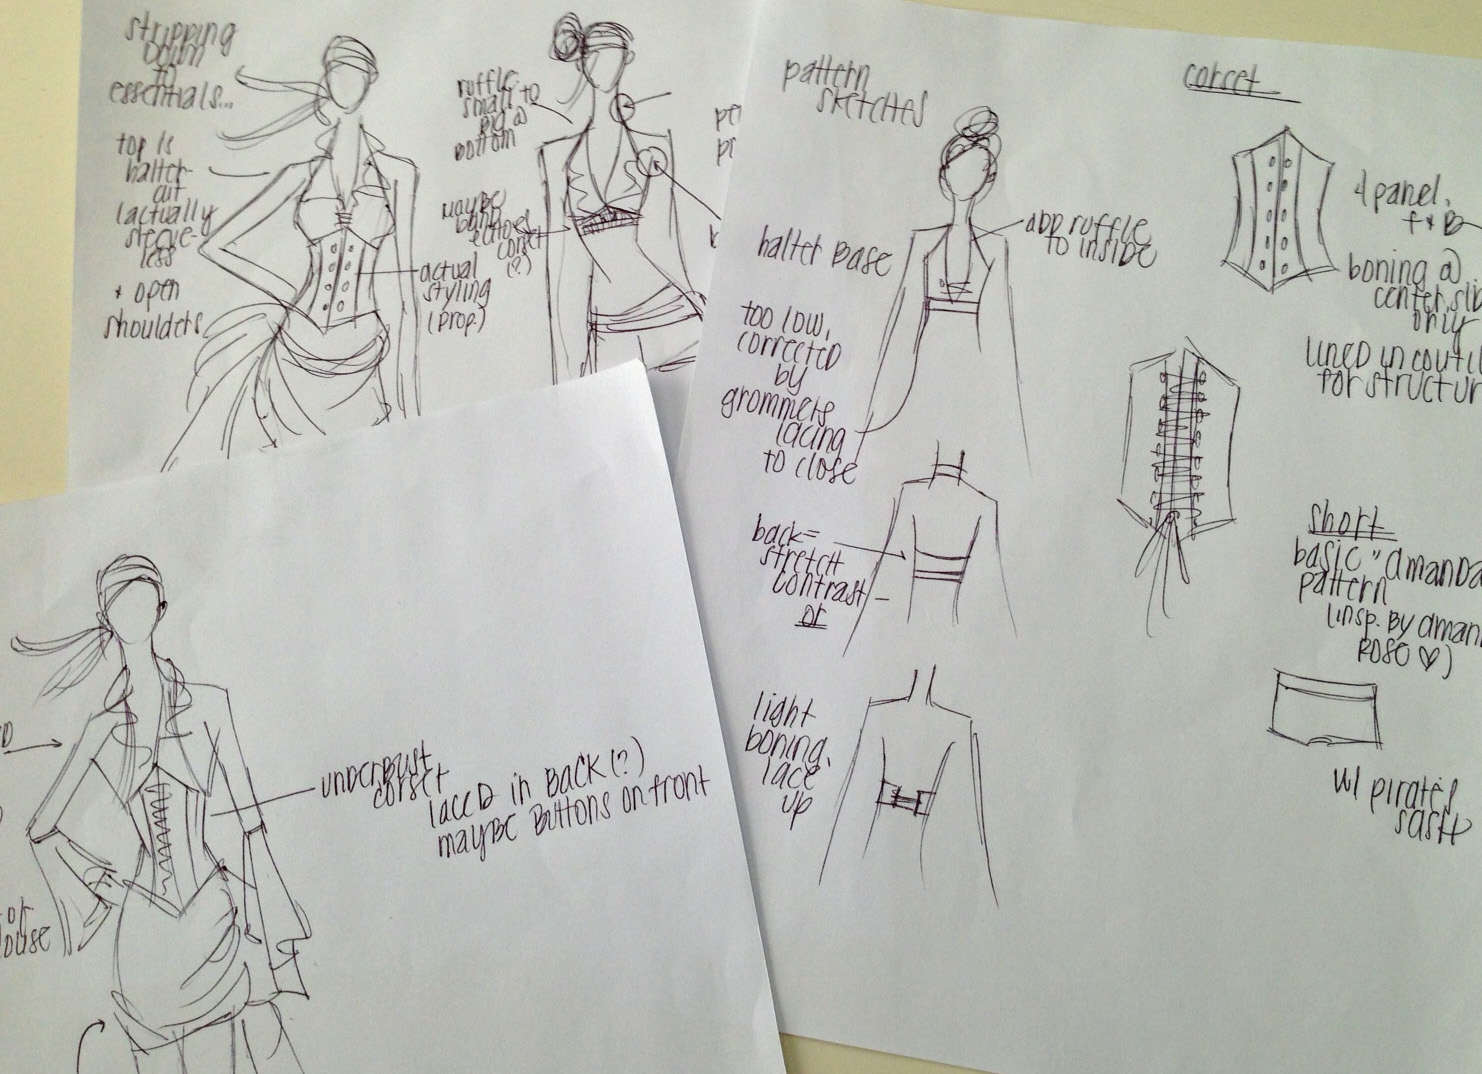 stripping
down
to
essentials...
top is
halter-
cut
(actually
sleeve-
less
+ open
shoulders
actual
styling
(prop.)
ruffle-
small to
big @
bottom
maybe
band
echoes
corset
(?)
pattern
sketches
halter base
add ruffle
to inside
too low,
corrected
by
grommets
lacing
to close
back=
stretch
contrast
or
light
boning,
lace
up
corset
4 panel,
f + B
boning @
center,
only
lined in
for
short
basic "amanda
pattern
(insp. by
Rose ♡)
w/ pirates
sash
underbust
corset
laced in back (?)
maybe buttons on front
or